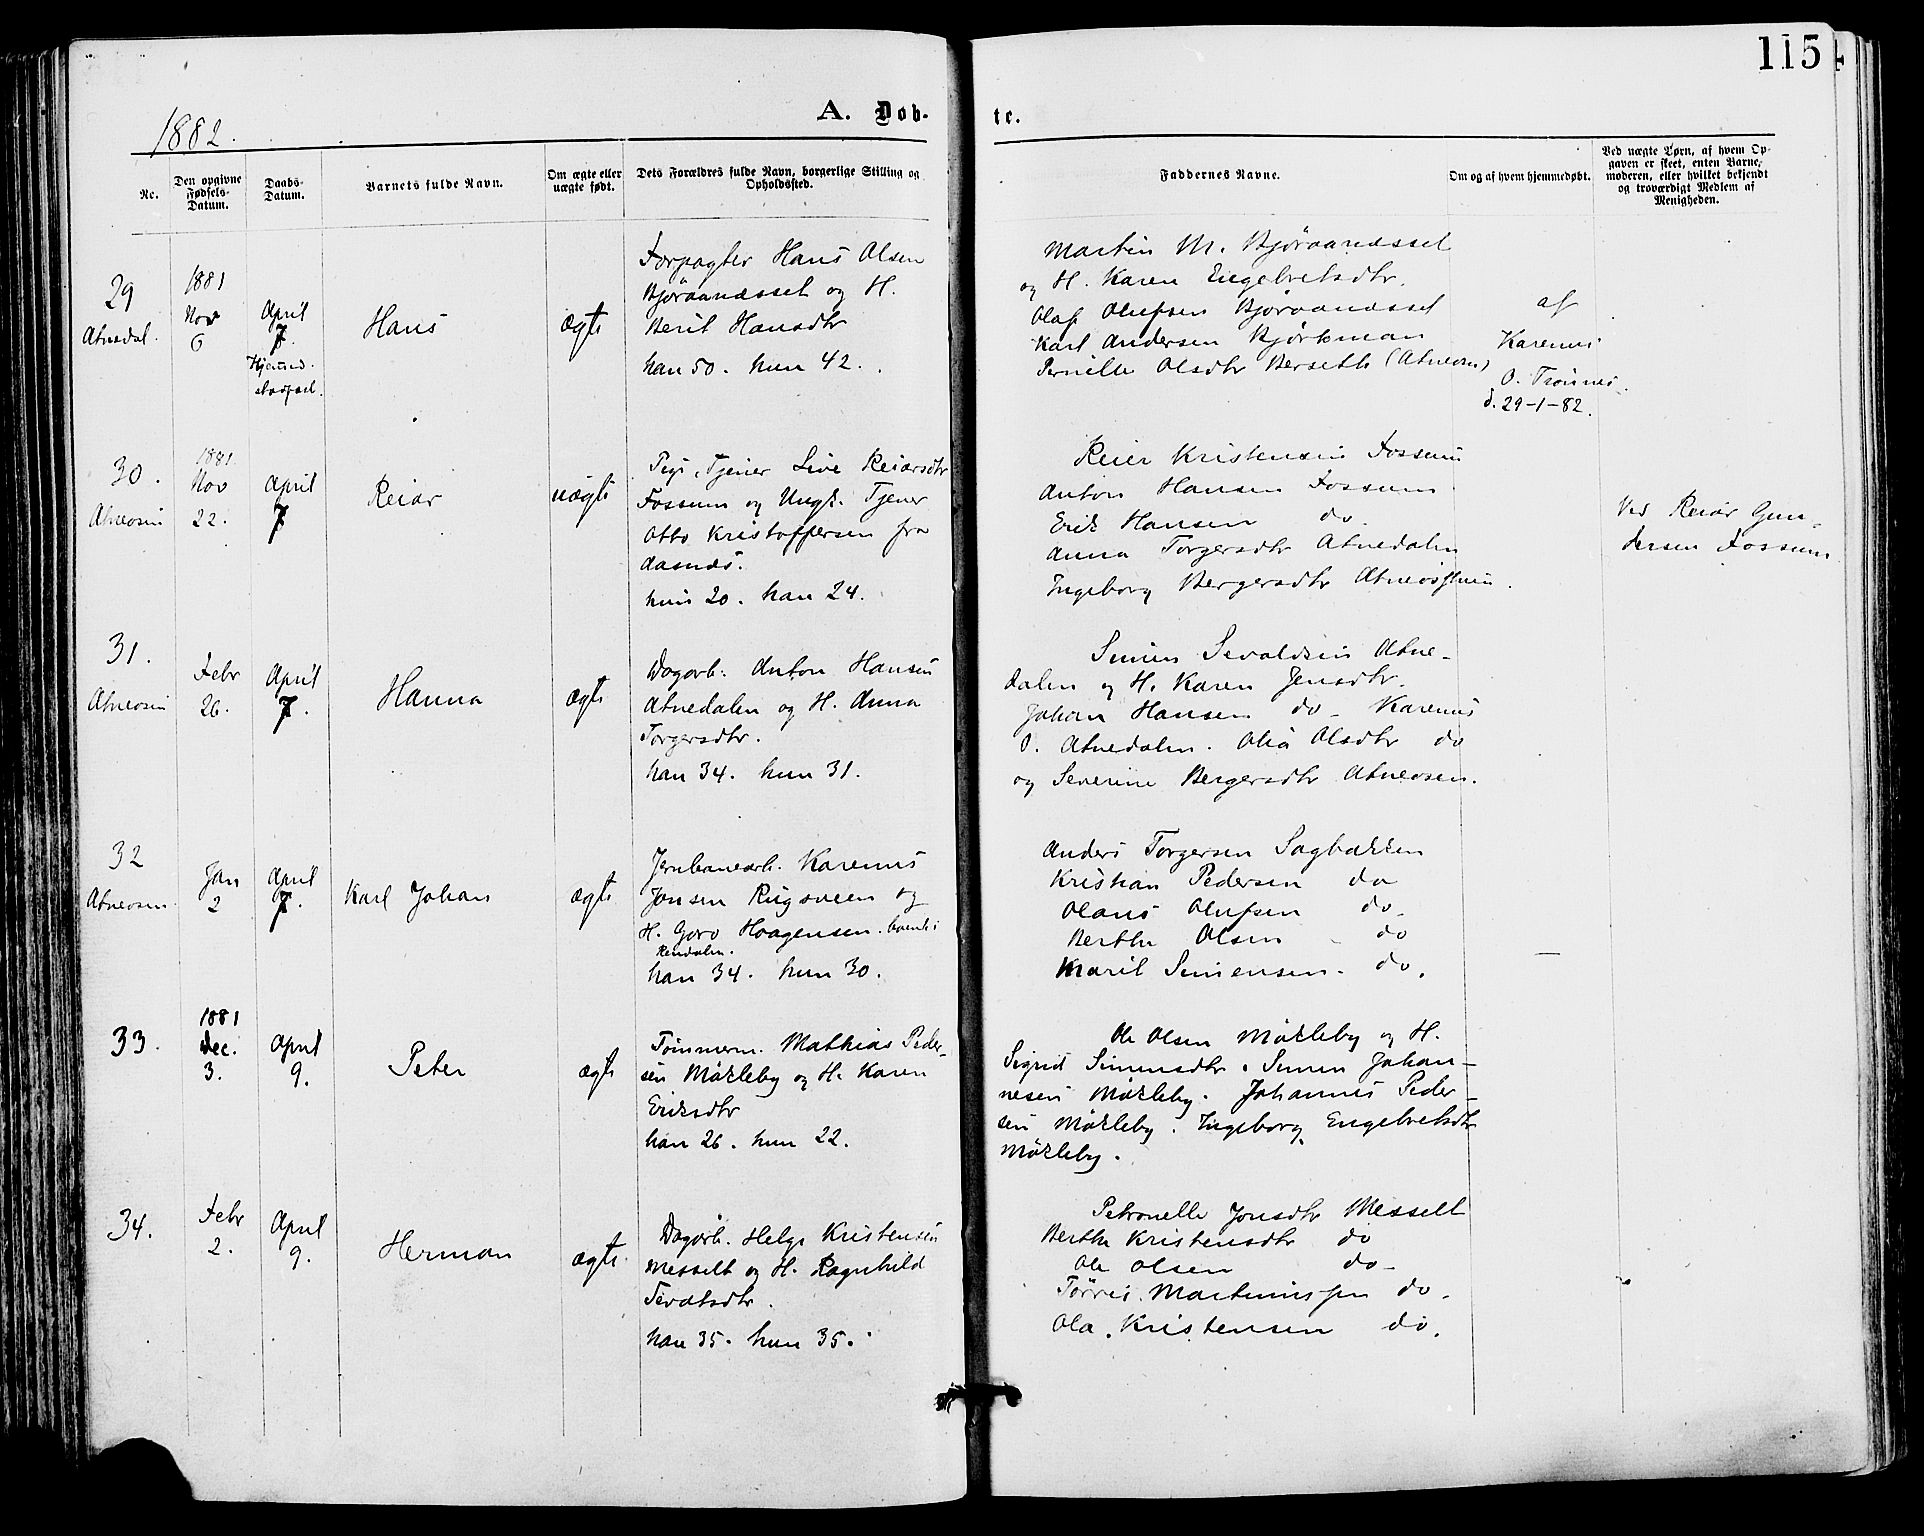 115
1882.
A. Døb-
te.
No.
Den opgivne Fødsels-Datum.
Daabs-Datum.
Barnets fulde Navn.
Om ægte eller uægte født.
Dets Forældres fulde Navn, borgerlige Stilling og Opholdssted.
Faddernes Navne.
Om og af hvem hjemmedøbt.
Ved uægte Børn, af hvem Op-
gaven er skeet, enten Barne-
moderen, eller hvilket bekjendt
og troværdigt Medlem af
Menigheden.
29
Atnedal.
1881
Nov
6
April
7.
Hjemmed.
stadfæst.
Hans
ægte
Forpagter Hans Olsen
Bjøraanæsset og H.
Berit Hansdtr
han 50. hun 42.
Martin M. Bjøraanæsset
og H. Karen Engebretsdtr.
Olaf Olufsen Bjøraanæsset
Karl Andersen Bjørkman
Pernille Olsdtr Berseth (Atneosen)
af
Karenus
O. Trønnes
d. 29-1-82.
30.
Atneosen
1881.
Nov
22.
April
7
Reiar
uægte
Pige, Tjener Live Reiarsdtr
Fossum og Ungk. Tjener
Otto Kristoffersen fra
Aasnæs.
hun 20. han 24.
Reier Kristensen Fossum
Anton Hansen Fossum
Erik Hansen do.
Anna Torgersdtr Atnedalen
Ingeborg Bergersdtr Atneosen.
Ved Reiar Gun-
dersen Fossum
31.
Atneosen
Febr
26.
April
7.
Hanna
ægte
Dagarb. Anton Hansen
Atnedalen og H. Anna
Torgersdtr.
han 34. hun 31.
Simen Sevaldsen Atne-
dalen og H. Karen Jensdtr.
Johan Hansen do - Karenus
O. Atnedalen. Olia Olsdtr do
og Severine Bergersdtr Atneosen.
32
Atneosen
Jan
2
April
7.
Karl Johan
ægte
Jernbanearb. Karenus
Jonsen Rugsveen og
H. Goro Haagensen. boende i
Rendalen.
han 34. hun 30.
Anders Torgersen Sagbakken
Kristian Pedersen do
Olaus Olufsen do.
Berthe Olsen - do
Marit Simensen. do.
—
33.
1881
Dec.
3.
April
9.
Peter
ægte
Tømmerm. Mathias Peder-
sen Møkleby og H. Karen
Eriksdtr
han 26. hun 22.
Ole Olsen Møkleby og H.
Sigrid Simensdtr. Simen Johan-
nesen Møkleby. Johannes Peder-
sen Møkleby. Ingeborg Engebretsdtr
Møkleby.
34.
Febr
2.
April
9.
Herman
ægte
Dagarb. Helge Kristensen
Messelt og H. Ragnhild
Sevatsdtr.
han 35. hun 35.
Petronelle Jonsdtr Messelt
Berthe Kristensdtr do
Ole Olsen do -
Tørris Martinussen do.
Ola Kristensen do.